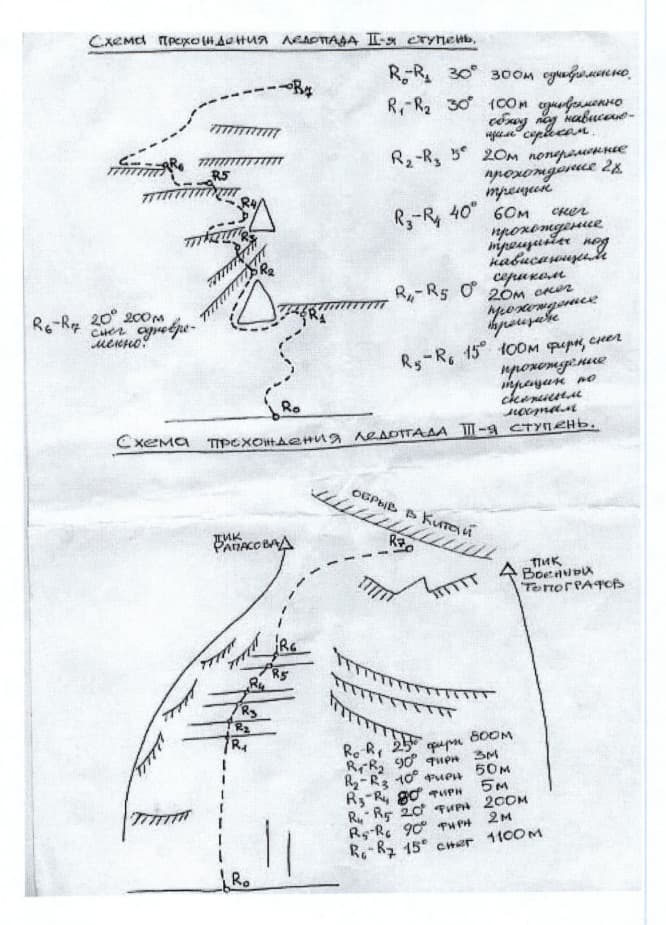 Схема прохождения ледопада II-я ступень.
R7
R6
R5
R4
R3
R2
R1
R0
R0-R1 30° 300м одновременно.
R1-R2 30° 100м одновременно
обход под нависаю-
щим сераком.
R2-R3 5° 20м попеременное
прохождение 2х
трещин
R3-R4 40° 60м снег
прохождение
трещины под
нависающим
сераком
R4-R5 0° 20м снег
прохождение
трещин
R5-R6 15° 100м фирн, снег
прохождение
трещин по
снежным
мостам
R6-R7 20° 200м
снег одновре-
менно.
Схема прохождения ледопада III-я ступень.
обрыв в Китай
пик
Рапасова
R7
пик
Военных
Топографов
R6
R5
R4
R3
R2
R1
R0
R0-R1 25° фирн 800м
R1-R2 90° фирн 3м
R2-R3 10° фирн 50м
R3-R4 80° фирн 5м
R4-R5 20° фирн 200м
R5-R6 90° фирн 2м
R6-R7 15° снег 1100м